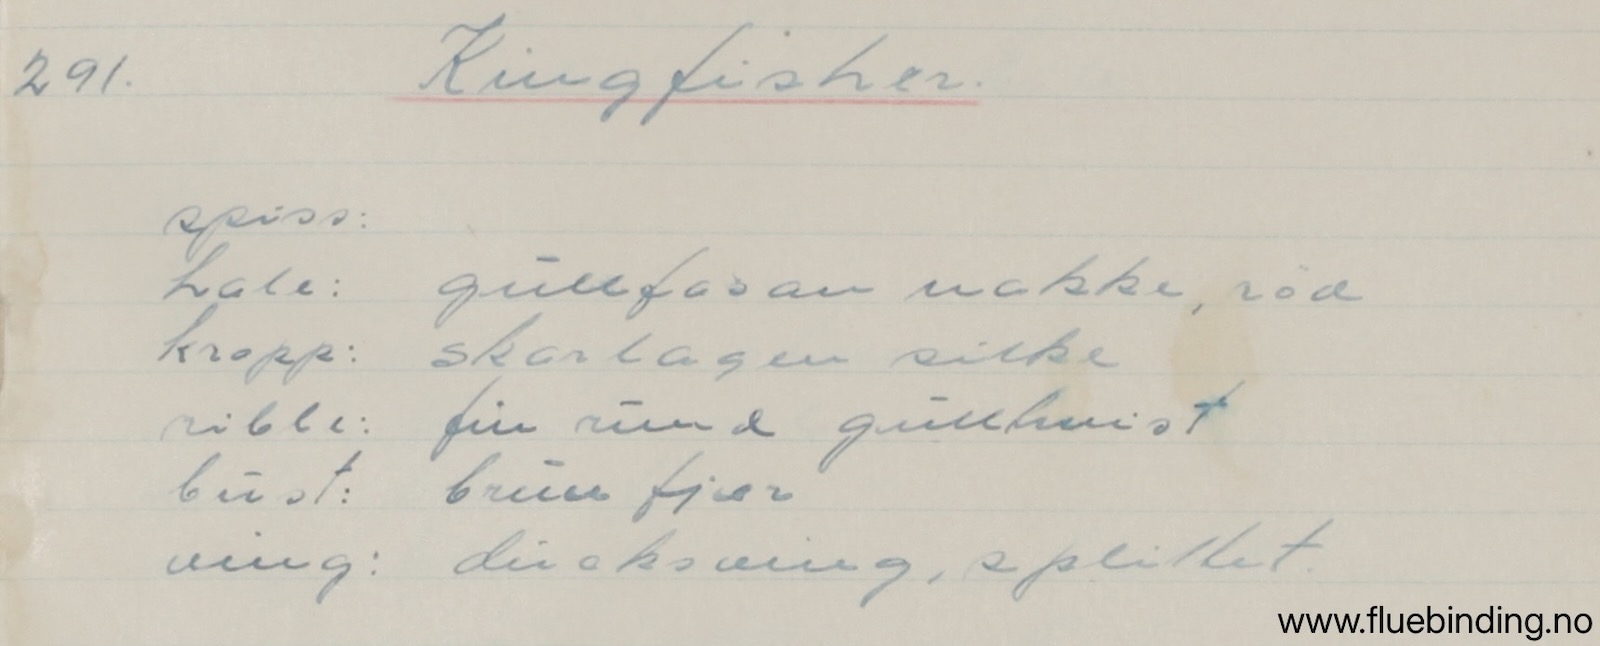 291. Kingfisher.
spiss:
hale: gullfasan nakke, röd
kropp: skarlagen silke
ribbe: fin rund gulltvist
bust: brun fjær
ving: ducksving, splittet.
www.fluebinding.no